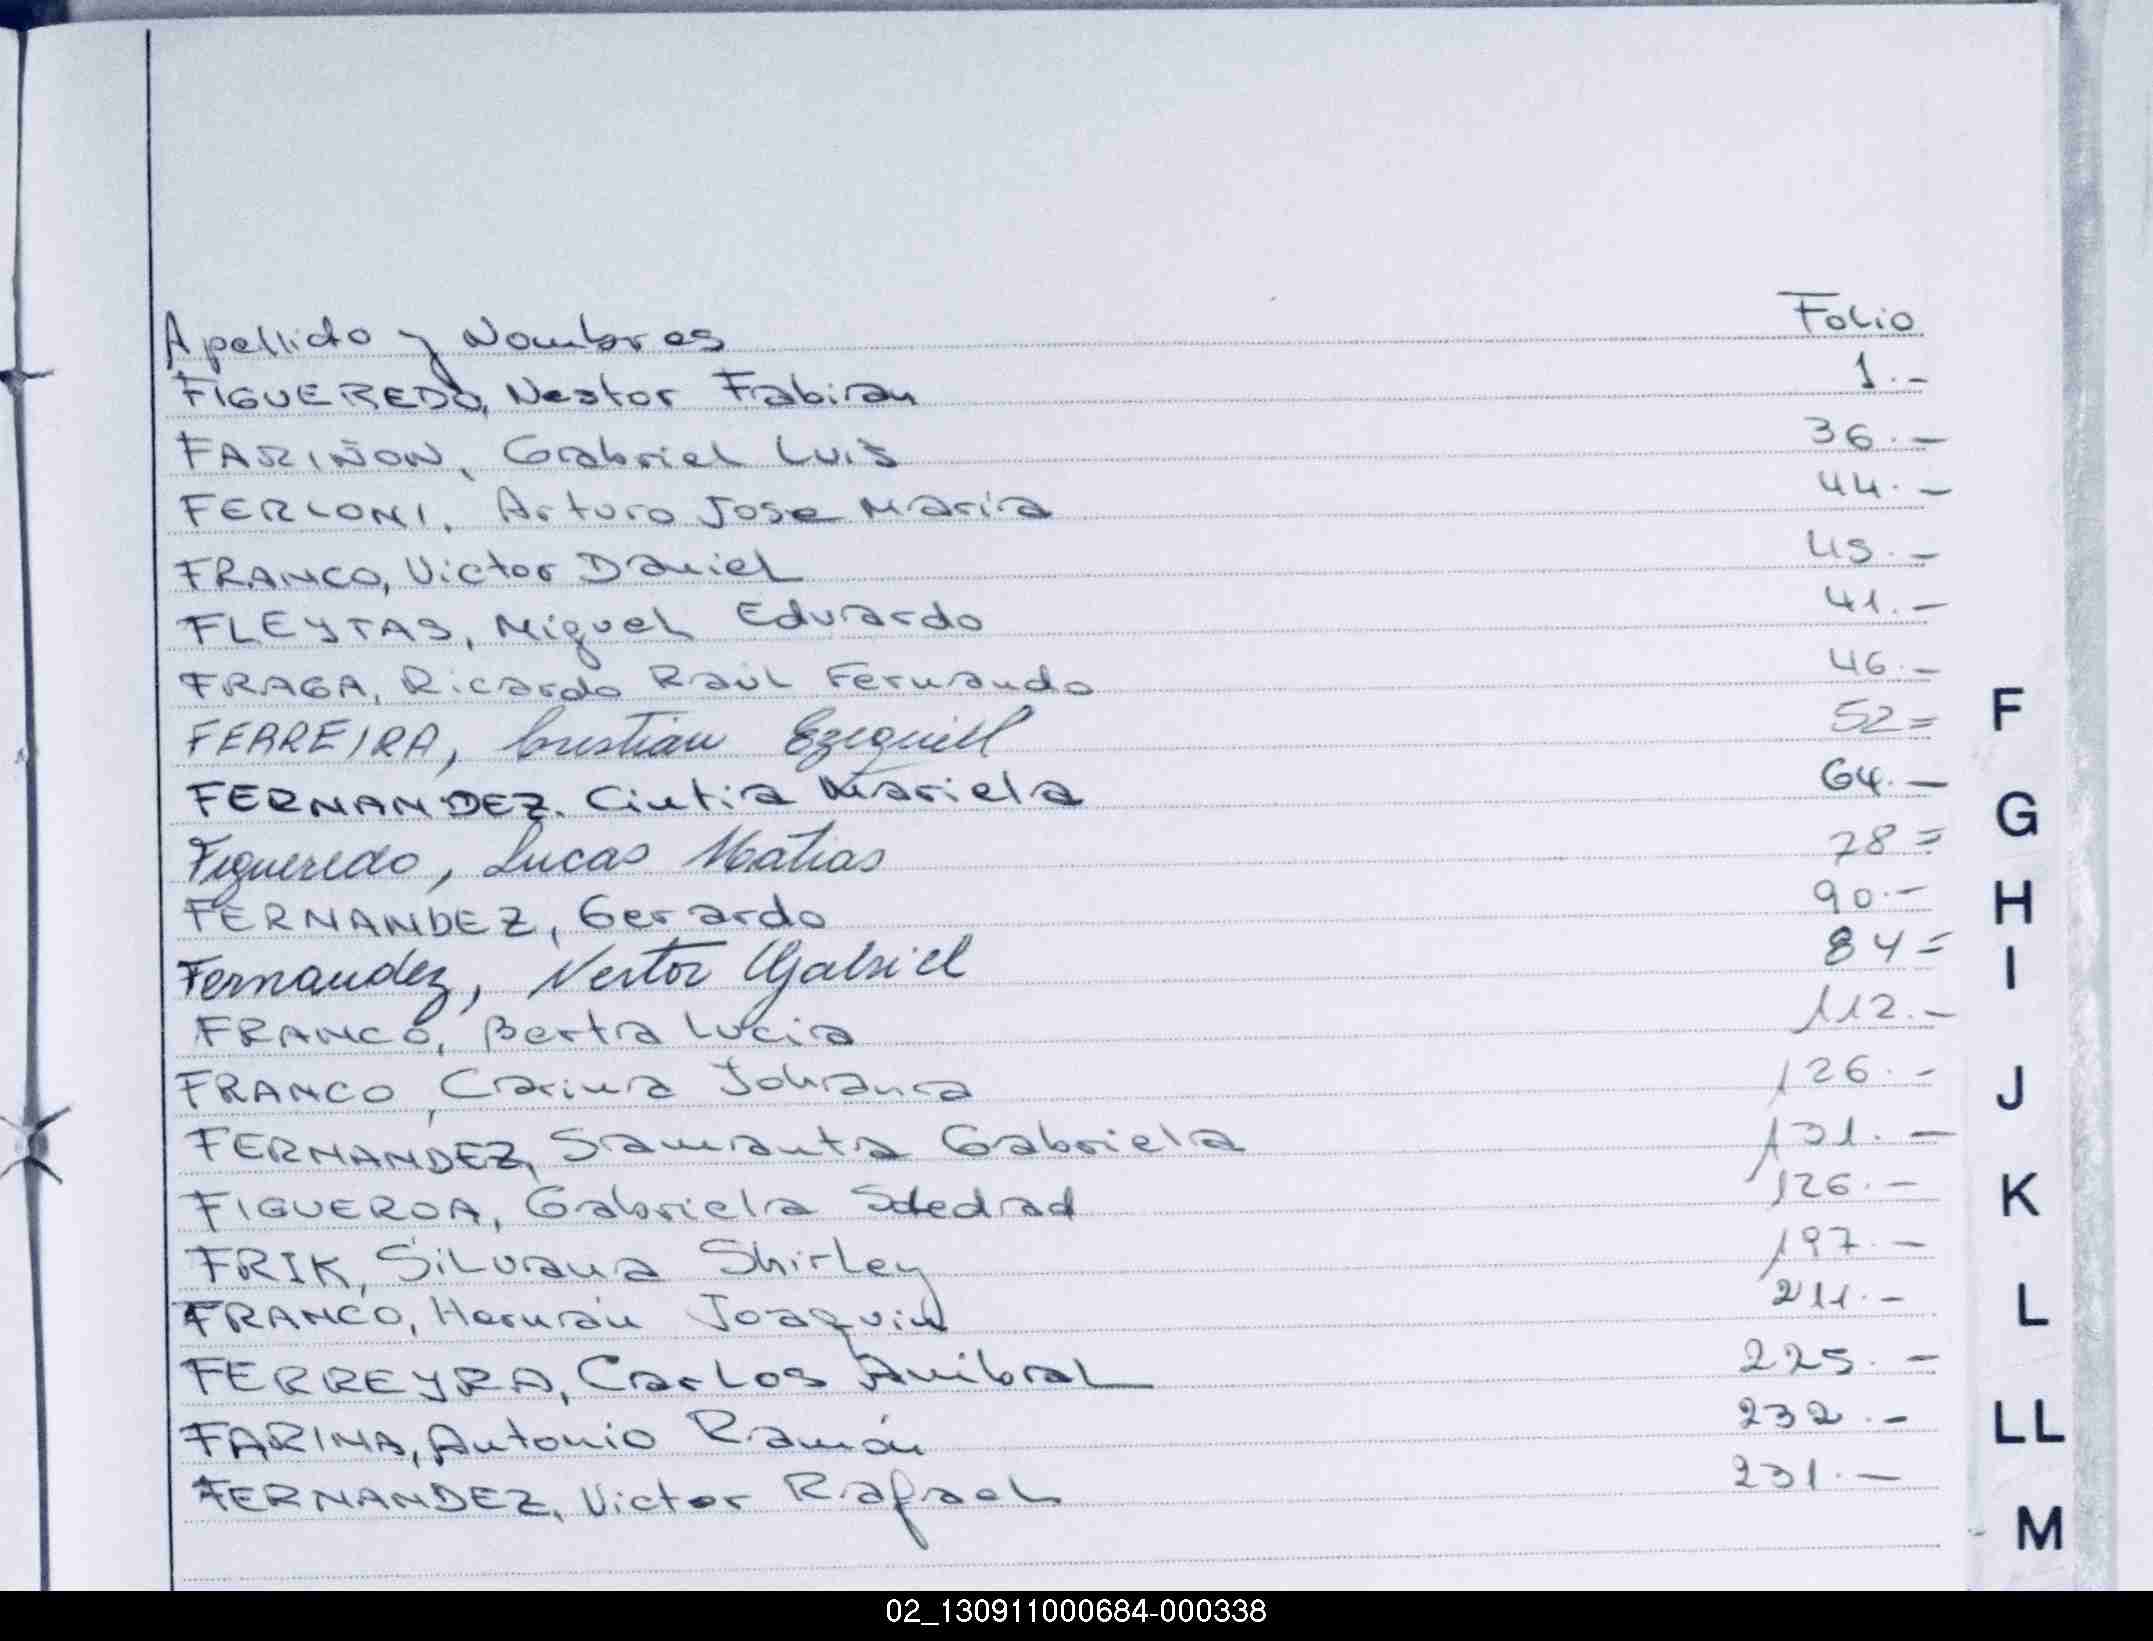 Apellido y Nombres Folio
FIGUEREDO, Nestor Fabian 1.-
FARIÑON, Gabriel Luis 36.-
FERLONI, Arturo Jose Maria 44.-
FRANCO, Victor Daniel 45.-
FLEYTAS, Miguel Eduardo 41.-
FRAGA, Ricardo Raúl Fernando 46.-
FERREIRA, Cristian Ezequiel 52=
FERNANDEZ. Cintia Mariela 64.-
Figueredo, Lucas Matias 78=
FERNANDEZ, Gerardo 90.-
Fernandez, Nestor Gabriel 84=
FRANCO, Berta Lucia 112.-
FRANCO, Carina Johanna 126.-
FERNANDEZ, Samanta Gabriela 131.-
FIGUEROA, Gabriela Soledad 126.-
FRIK, Silvana Shirley 197.-
FRANCO, Hernán Joaquin 211.-
FERREYRA, Carlos Anibal 225.-
FARINA, Antonio Ramón 232.-
FERNANDEZ, Victor Rafael 231.-
F
G
H
I
J
K
L
LL
M
02_130911000684-000338